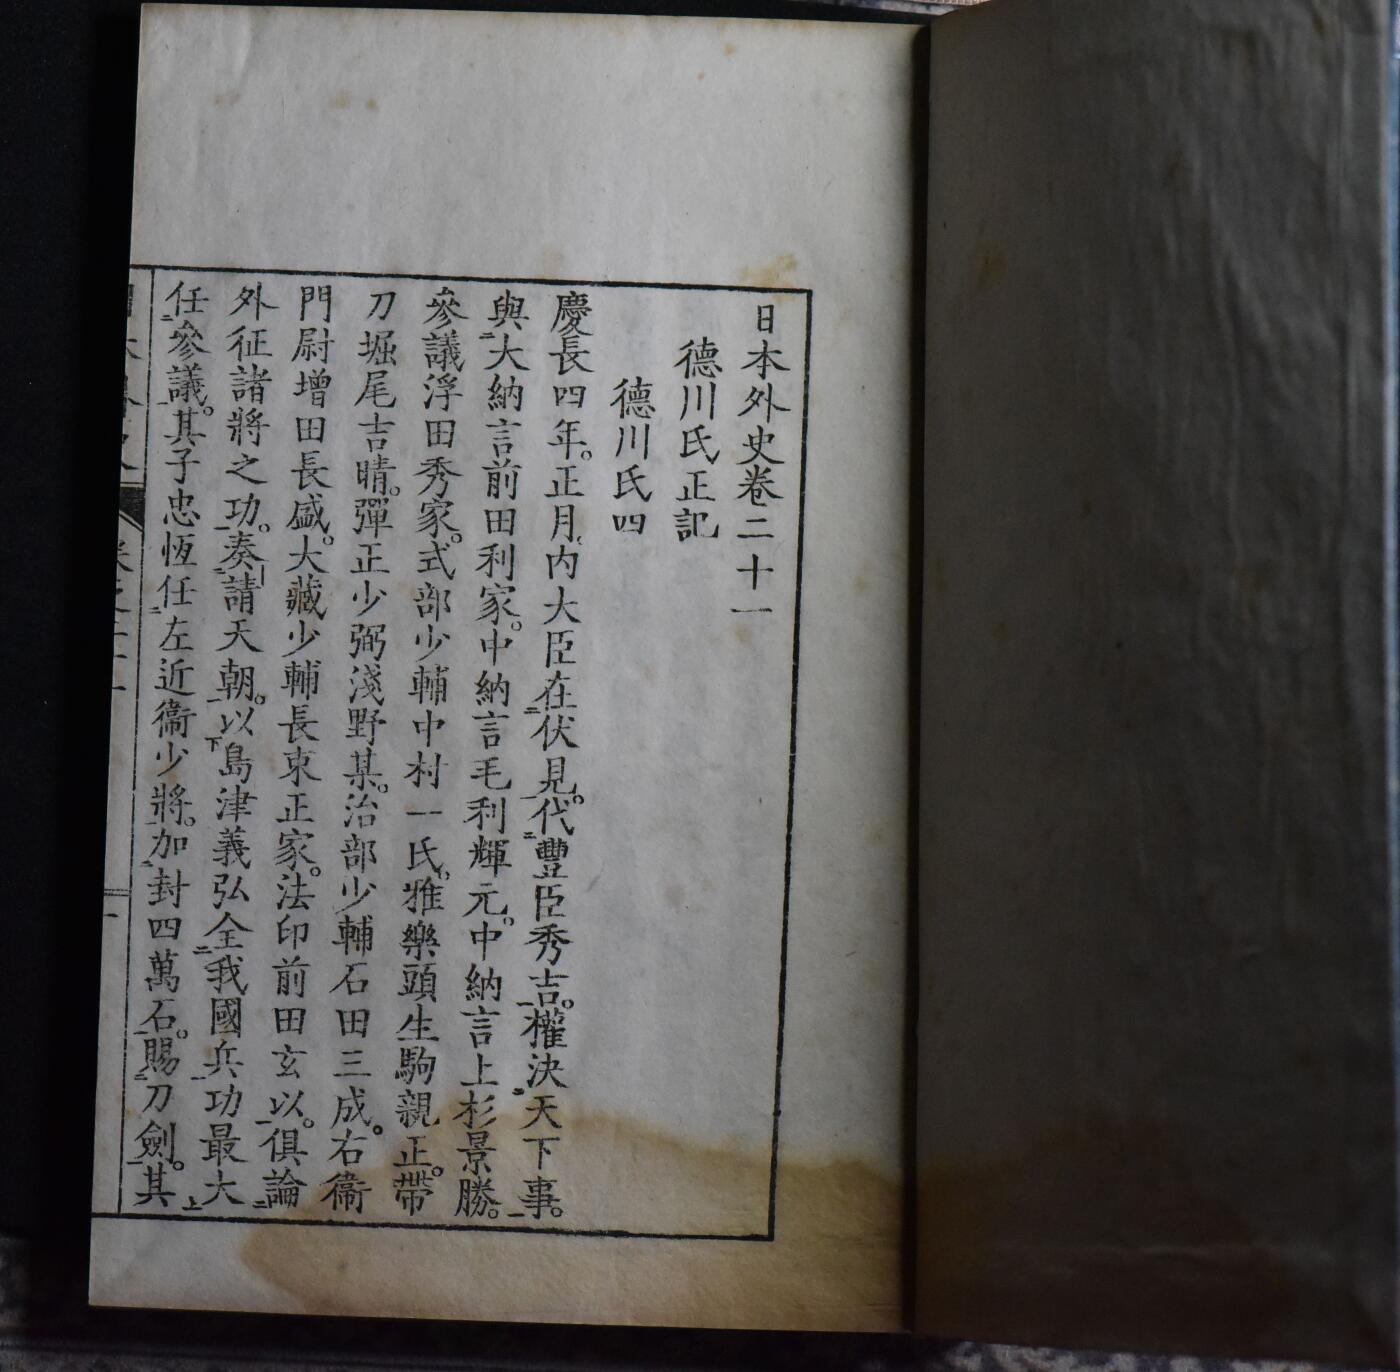 日本外史卷二十一
德川氏正記
德川氏四
慶長四年。正月、內大臣在伏見。代豐臣秀吉。權決天下事。
與大納言前田利家。中納言毛利輝元。中納言上杉景勝。
參議浮田秀家。式部少輔中村一氏。雅樂頭生駒親正。帶
刀堀尾吉晴。彈正少弼淺野某。治部少輔石田三成。右衞
門尉增田長盛。大藏少輔長束正家。法印前田玄以。俱論
外征諸將之功。奏請天朝。以島津義弘全我國兵功最大
任參議。其子忠恆任左近衞少將。加封四萬石。賜刀劍。其